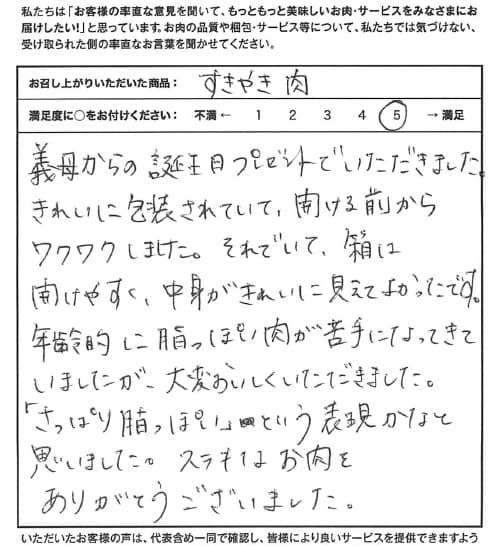 私たちは「お客様の率直な意見を聞いて、もっともっと美味しいお肉・サービスをみなさまにお
届けしたい!」と思っています。お肉の品質や梱包・サービス等について、私たちでは気づけない、
受け取られた側の率直なお言葉を聞かせてください。
お召し上がりいただいた商品： すきやき肉
満足度に○をお付けください： 不満 ← 1 2 3 4 5 → 満足
義母からの誕生日プレゼントでいただきました。
きれいに包装されていて、開ける前から
ワクワクしました。それでいて、箱は
開けやすく、中身がきれいに見えてよかったです。
年齢的に脂っぽい肉が苦手になってきて
いましたが、大変おいしくいただきました。
「さっぱり脂っぽい」という表現かなと
思いました。ステキなお肉を
ありがとうございました。
いただいたお客様の声は、代表含め一同で確認し、皆様により良いサービスを提供できますよう